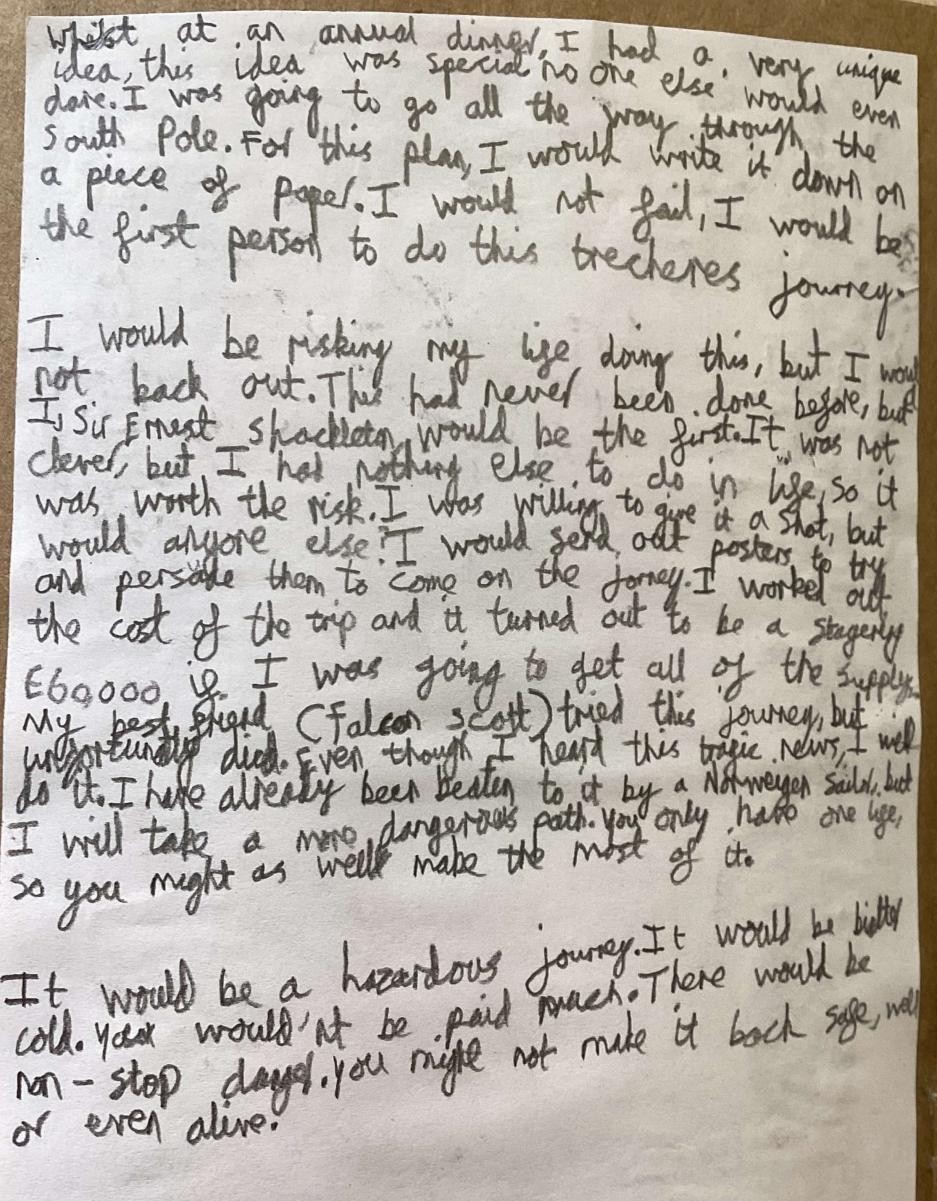 Whilst at an annual dinner, I had a very unique
idea, this idea was special no one else would even
dare. I was going to go all the way through the
South Pole. For this plan, I would write it down on
a piece of paper. I would not fail, I would be
the first person to do this trecheres journey.
I would be risking my life doing this, but I woul
not back out. This had never been done before, but
I, Sir Ernest Shackleton, would be the first. It was not
clever, but I had nothing else to do in life, so it
was worth the risk. I was willing to give it a shot, but
would anyone else? I would send out posters to try
and persade them to come on the jorney. I worked out
the cost of the trip and it turned out to be a stagerly
£60,000 if I was going to get all of the supplys.
My best friend (falcon scott) tried this journey, but
unfortundtly died. Even though I heard this tragic news, I will
do it. I have already been beaten to it by a Norweyen Sailor, but
I will take a more dangerous path. you only have one life,
so you might as well make the most of it.
It would be a hazardous journey. It would be bitter
cold. you would'nt be paid much. There would be
non-stop danger. you might not make it back safe, well
or even alive.